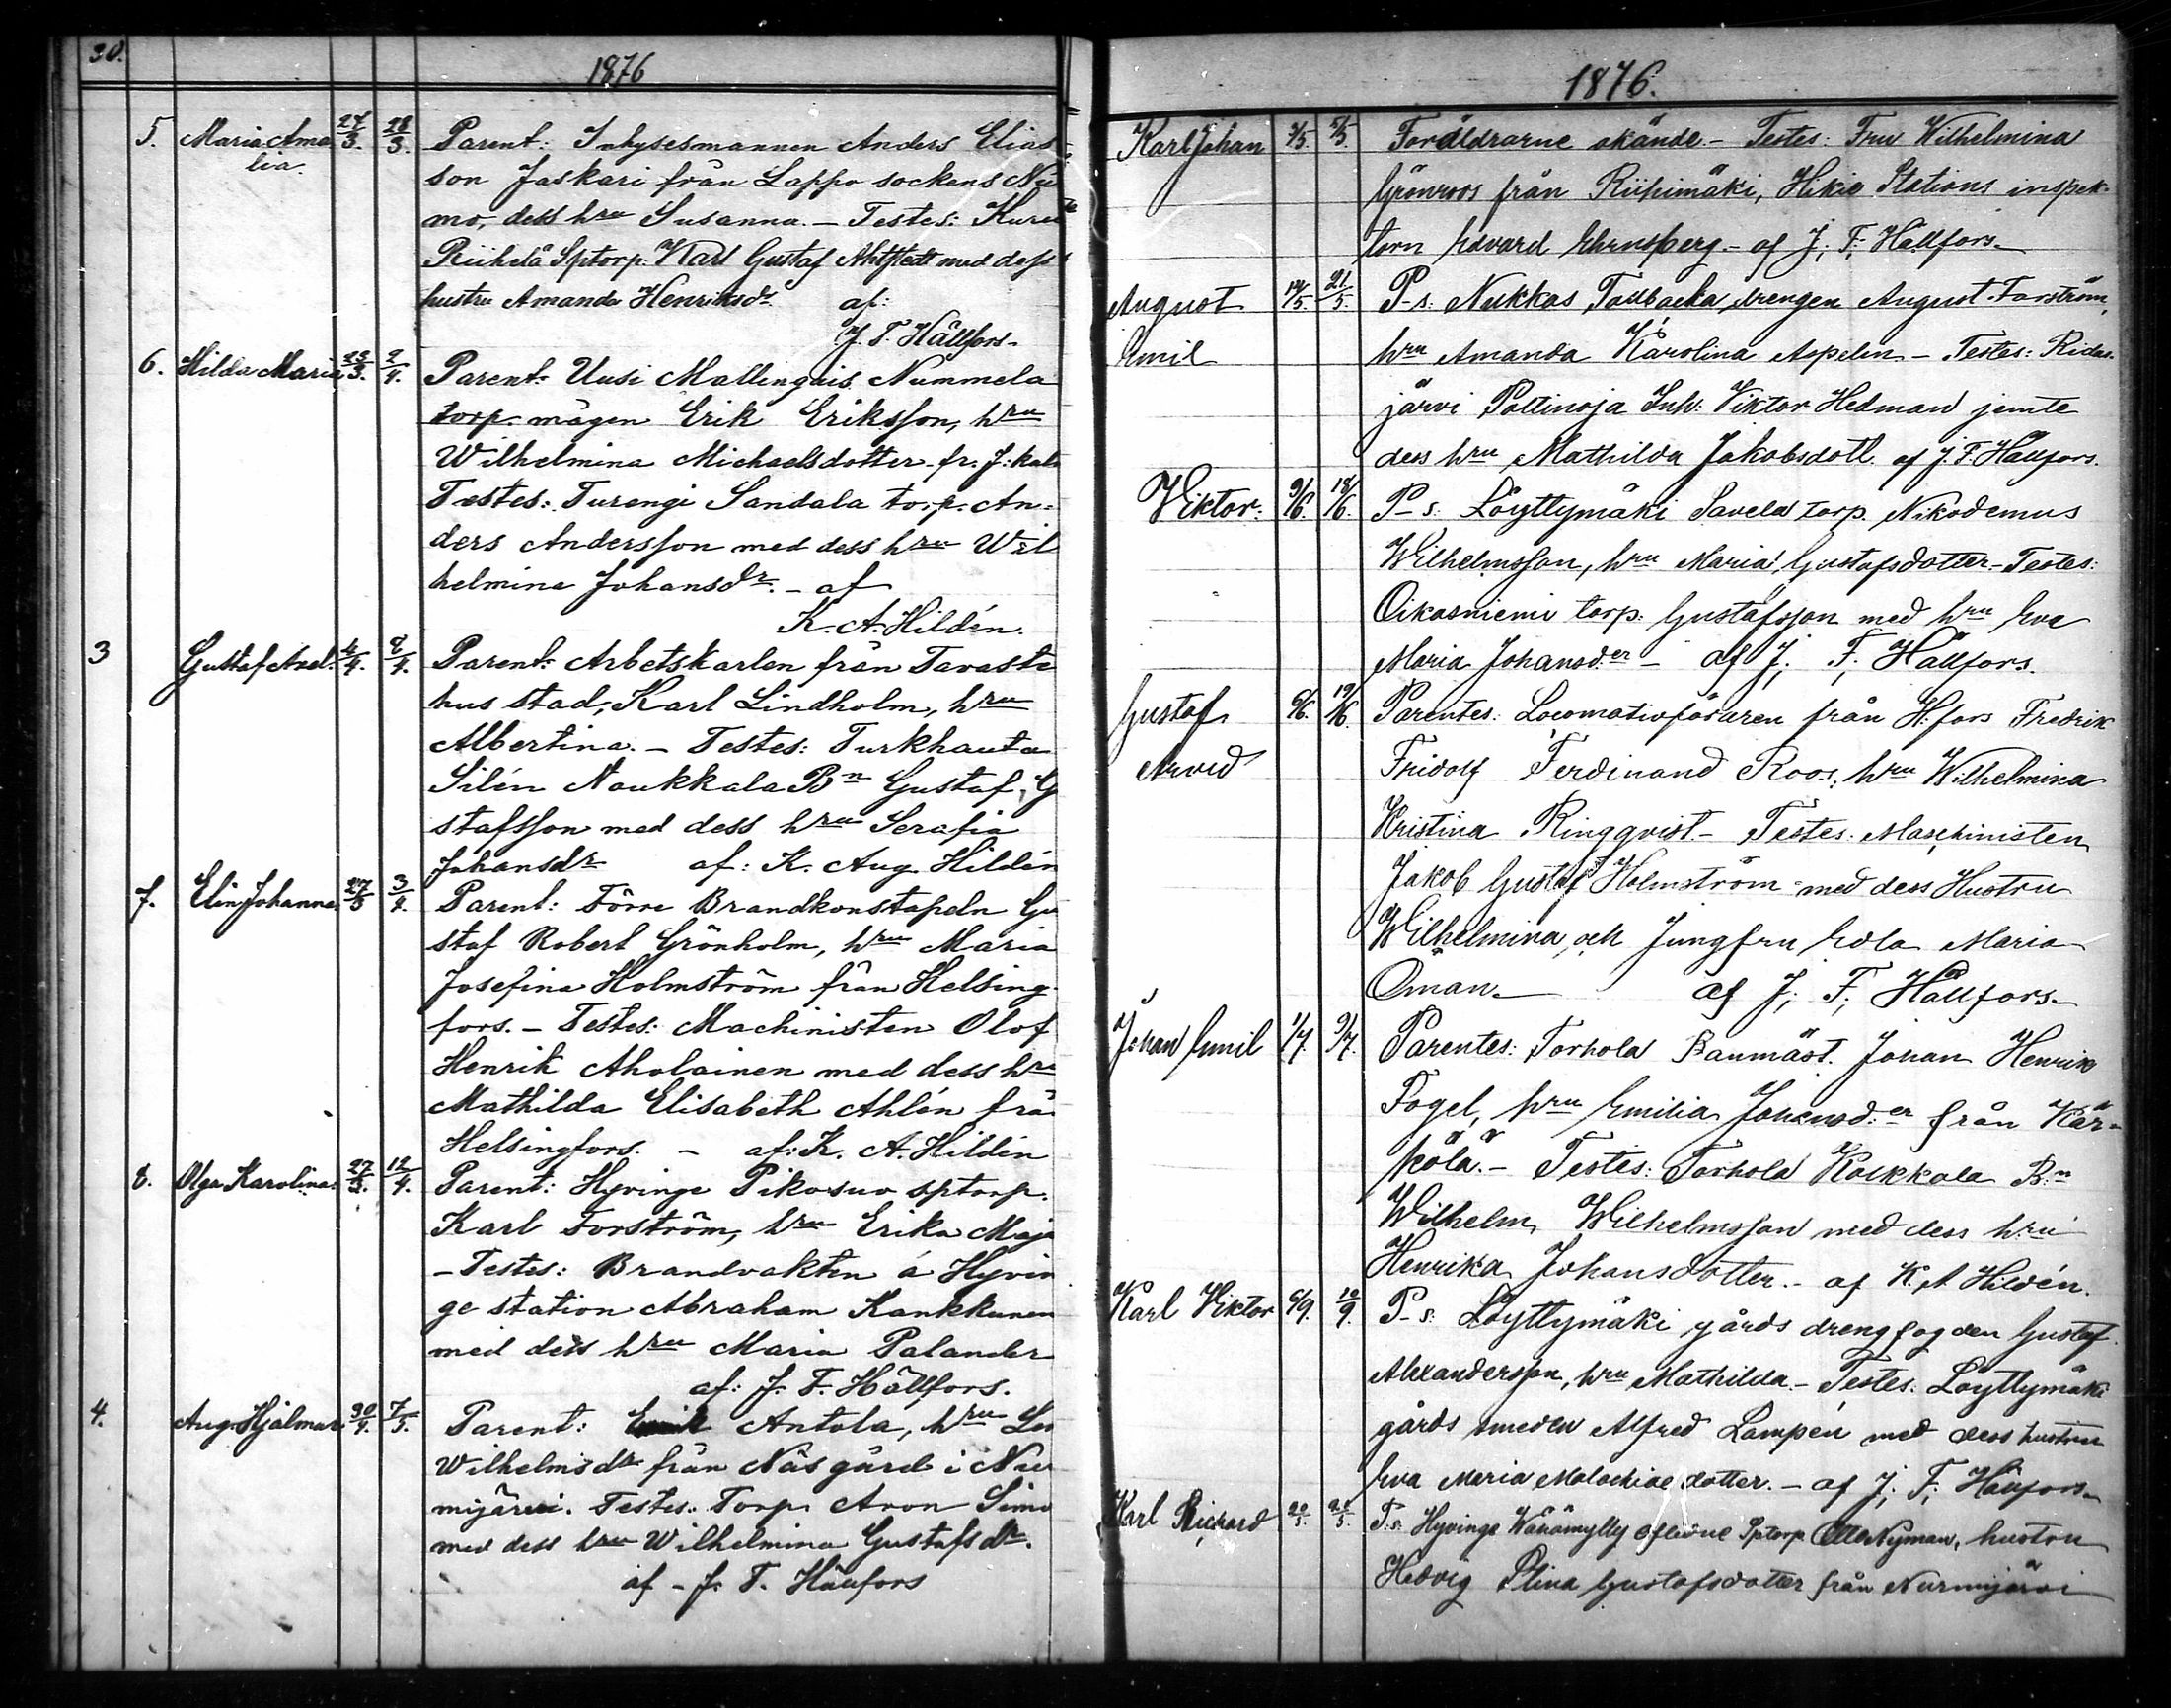 30.
1876
5. Maria Ama 27/3. 28/3. Parent: Inhysesmannen Anders Elias
lia. son Jaskari från Lappo sockens
mo, dess hru Susanna. – Testes:
Riihelä Sptorp. Karl Gustaf Ahlstedt med dess
hustru Amanda Henriksdr af:
J. F. Hällfors.
6. Hilda Maria 23/3. 2/4. Parent: Uusi Mallinguis Nummela
torp. mågen Erik Eriksson, hru
Wilhelmina Michaelsdotter fr. J:kala
Testes: Turengi Sandala torp. An-
ders Andersson med dess hru Wil
helmina Johansdr. – af
K. A. Hildén.
3 Gustaf Axel. 4/4. Parent: Arbetskarlen från Tavaste
hus stad, Karl Lindholm, hru
Albertina. – Testes: Turkhauta
Silén Naukkala Bn Gustaf G
stafsson med dess hru Serafia
Johansdr af: K. Aug. Hildén
7. Elin Johanna 27/3 3/4. Parent: Förre Brandkonstapeln Gu
staf Robert Grönholm, hru Maria
Josefina Holmström från Helsing
fors. – Testes: Machinisten Olof
Henrik Aholainen med dess hru
Mathilda Elisabeth Ahlén frå
Helsingfors. – af: K. A. Hildén
8. Olga Karolina 27/3. 12/4. Parent: Hyvinge Pikosuo sptorp.
Karl Forström, hru Erika Maja
– Testes: Brandvakten å Hyvin
ge station Abraham Kankkunen
med dess hru Maria Palander
af: J. F. Hällfors.
4. Aug. Hjalmar 30/4. 7/5. Parent: Antola, hru
Wilhelmsdr från Näs gård i Nur
mijärvi. Testes: Torp. Aron Simo
med dess hru Wilhelmina Gustafsdr.
af – J. F. Hällfors
1876.
Karl Johan 5/5. Föräldrarne okände. – Testes: Fru Wilhelmina
Grönroos från Riihimäki, Hikie Stations inspek-
torn Edvard Ehrnsberg. – af J. F. Hällfors.
August 14/5. 21/5. P-s: Nukkas Tallbacka drengen August Forström,
Emil hru Amanda Karolina Aspelin – Testes: Ridas-
järvi Pottinoja Inh: Viktor Hedman jemte
dess hru Mathilda Jakobsdott. af J. F. Hällfors.
Viktor. 9/6. 18/6. P-s: Löyttymäki Savela torp. Nikodemus
Wilhelmsson, hru Maria Gustafsdotter. – Testes:
Oikosniemi torp. Gustafsson med hru Eva
Maria Johansd:er – af J. F. Hällfors.
Gustaf 6/6. 19/6 Parentes: Locomotivföraren från H:fors Fredrik
Arvid Fridolf Ferdinand Roos, hru Wilhelmina
Kristina Ringqvist – Testes: Maschinisten
Jakob Gustaf Holmström med dess Hustru
Wilhelmina, och Jungfru Edla Maria
Öman. – af J. F. Hällfors.
Johan Emil 1/7. 9/7. Parentes: Torhola Banmäst. Johan Henrik
Fogel, hru Emilia Johansd:er från Kär-
kölä. – Testes: Torhola Koukkala B:n
Wilhelm Wilhelmsson med dess hru
Henrika Johansdotter. – af K. A. Hildén.
Karl Viktor 6/9. 10/9. P-s: Löyttymäki gårds drengfogden Gustaf
Alexandersson, hru Mathilda. – Testes: Löyttymäki
gårds smeden Alfred Lampén med dess hustru
Eva Maria Malachiae dotter. – af J. F. Hällfors.
Karl Richard P.s: Hyvinge Wäinömylly aflidne Sptorp. Olle Nyman, hustru
Hedvig Gustafsdotter från Nurmijärvi